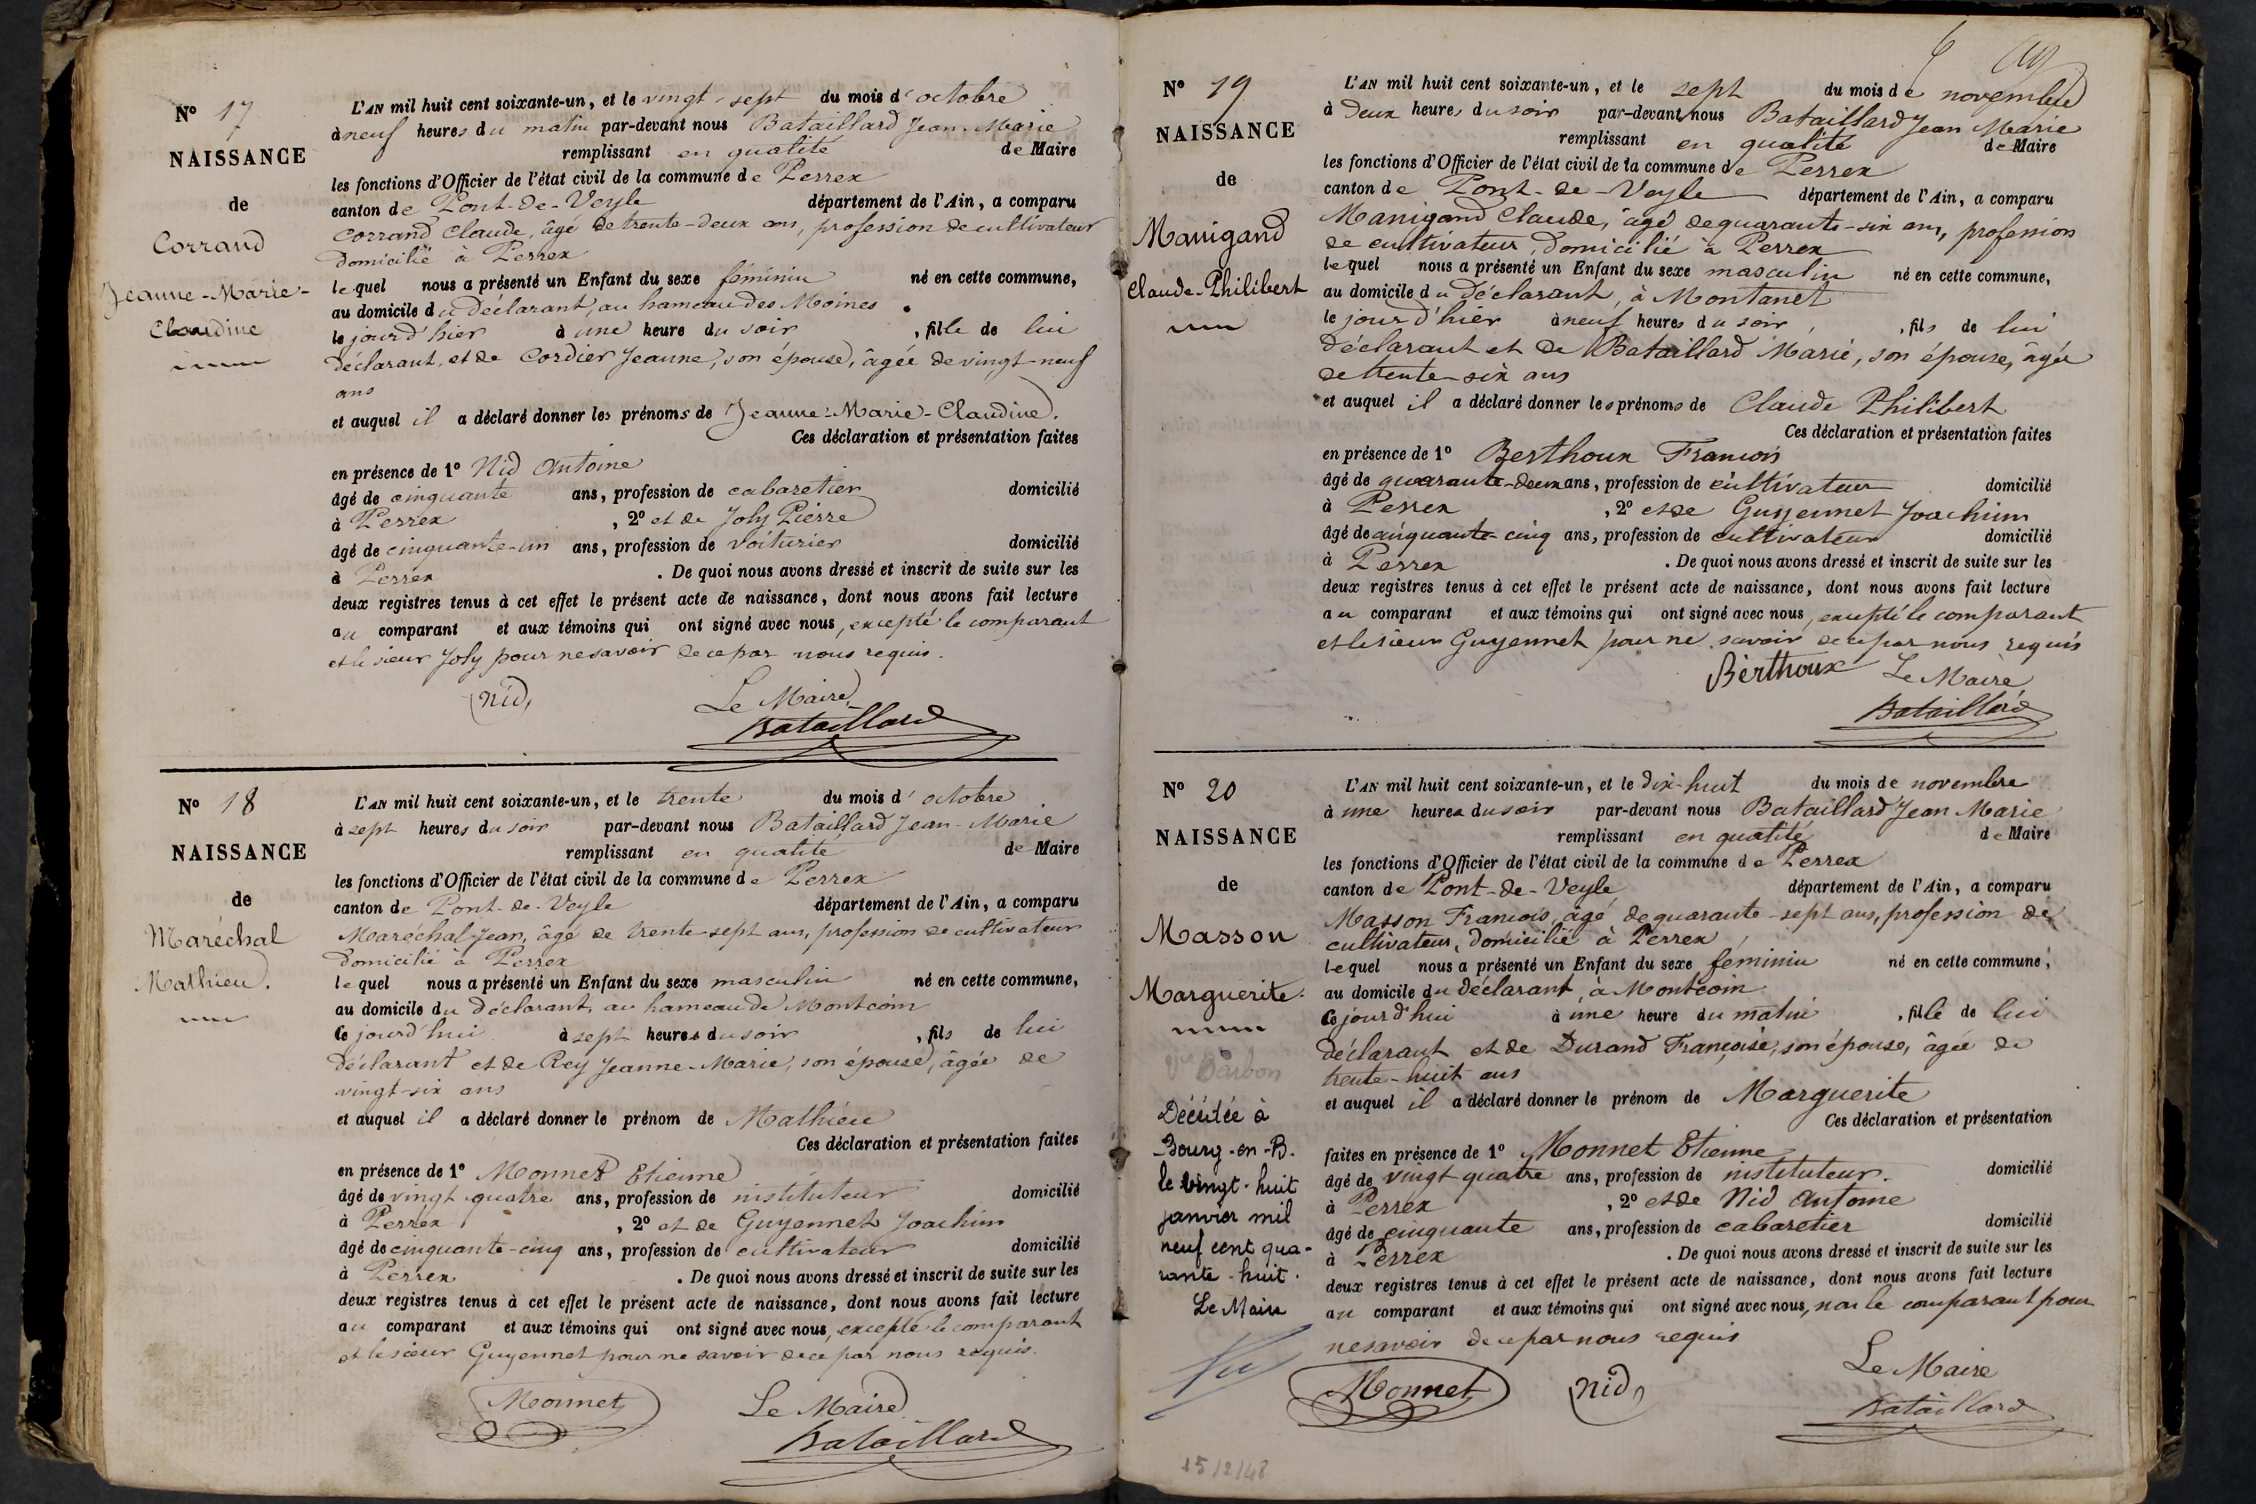 N° 17
NAISSANCE
de
Corrand
Jeanne-Marie-
Claudine
L'AN mil huit cent soixante-un, et le vingt-sept du mois d'octobre
à neuf heures du matin par-devant nous Bataillard Jean-Marie
remplissant en qualité de Maire
les fonctions d'Officier de l'état civil de la commune de Perrex
canton de Pont-de-Veyle département de l'Ain, a comparu
Corrand Claude, âgé de trente-deux ans, profession de cultivateur
domicilié à Perrex
lequel nous a présenté un Enfant du sexe féminin né en cette commune,
au domicile du Déclarant, au hameau des Moines
le jour d'hier à une heure du soir, fille de lui
déclarant, et de Cordier Jeanne, son épouse, âgée de vingt-neuf
ans
et auquel il a déclaré donner les prénoms de Jeanne-Marie-Claudine.
Ces déclaration et présentation faites
en présence de 1° Nid Antoine
âgé de cinquante ans, profession de cabaretier domicilié
à Perrex, 2° et de Joly Pierre
âgé de cinquante-un ans, profession de voiturier domicilié
à Perrex. De quoi nous avons dressé et inscrit de suite sur les
deux registres tenus à cet effet le présent acte de naissance, dont nous avons fait lecture
au comparant et aux témoins qui ont signé avec nous, excepté le comparant
et le sieur Joly pour ne savoir de ce par nous requis.
Nid
Le Maire
Bataillard
N° 18
NAISSANCE
de
Maréchal
Mathieu.
L'AN mil huit cent soixante-un, et le trente du mois d'octobre
à sept heures du soir par-devant nous Bataillard Jean-Marie
remplissant en qualité de Maire
les fonctions d'Officier de l'état civil de la commune de Perrex
canton de Pont-de-Veyle département de l'Ain, a comparu
Maréchal Jean, âgé de trente-sept ans, profession de cultivateur
domicilié à Perrex
lequel nous a présenté un Enfant du sexe masculin né en cette commune,
au domicile du déclarant, au hameau de Montcoin
Ce jourd'hui à sept heures du soir, fils de lui
déclarant et de Rey Jeanne-Marie, son épouse, âgée de
vingt-six ans
et auquel il a déclaré donner le prénom de Mathieu
Ces déclaration et présentation faites
en présence de 1° Monnet Etienne
âgé de vingt quatre ans, profession de instituteur domicilié
à Perrex, 2° et de Guyennet Joachim
âgé de cinquante-cinq ans, profession de cultivateur domicilié
à Perrex. De quoi nous avons dressé et inscrit de suite sur les
deux registres tenus à cet effet le présent acte de naissance, dont nous avons fait lecture
au comparant et aux témoins qui ont signé avec nous, excepté le comparant
et le sieur Guyennet pour ne savoir de ce par nous requis.
Monnet
Le Maire
Bataillard
6
N° 19
NAISSANCE
de
Manigand
Claude-Philibert
L'AN mil huit cent soixante-un, et le sept du mois de novembre
à deux heures du soir par-devant nous Bataillard Jean Marie
remplissant en qualité de Maire
les fonctions d'Officier de l'état civil de la commune de Perrex
canton de Pont-de-Veyle département de l'Ain, a comparu
Manigand Claude, âgé de quarante-six ans, profession
de cultivateur, domicilié à Perrex
lequel nous a présenté un Enfant du sexe masculin né en cette commune,
au domicile du déclarant, à Montanet
le jour d'hier à neuf heures du soir, fils de lui
déclarant et de Bataillard Marie, son épouse, âgée
de trente-six ans
et auquel il a déclaré donner les prénoms de Claude Philibert
Ces déclaration et présentation faites
en présence de 1° Berthoux Francois
âgé de quarante-deux ans, profession de cultivateur domicilié
à Perrex, 2° et de Guyennet Joachim
âgé de cinquante-cinq ans, profession de cultivateur domicilié
à Perrex. De quoi nous avons dressé et inscrit de suite sur les
deux registres tenus à cet effet le présent acte de naissance, dont nous avons fait lecture
au comparant et aux témoins qui ont signé avec nous, excepté le comparant
et le sieur Guyennet pour ne savoir de ce par nous requis
Berthoux
Le Maire
Bataillard
N° 20
NAISSANCE
de
Masson
Marguerite.
Vve Barbon
Décédée à
Bourg-en-B.
le vingt-huit
janvier mil
neuf cent qua-
rante-huit.
Le Maire
15/2/48
L'AN mil huit cent soixante-un, et le dix-huit du mois de novembre
à une heures du soir par-devant nous Bataillard Jean Marie
remplissant en qualité de Maire
les fonctions d'Officier de l'état civil de la commune de Perrex
canton de Pont-de-Veyle département de l'Ain, a comparu
Masson Francois, âgé de quarante-sept ans, profession de
cultivateur, domicilié à Perrex
lequel nous a présenté un Enfant du sexe féminin né en cette commune,
au domicile du déclarant, à Montcoin
Ce jourd'hui à une heure du matin, fille de lui
déclarant et de Durand Françoise, son épouse, âgée de
trente-huit ans
et auquel il a déclaré donner le prénom de Marguerite
Ces déclaration et présentation
faites en présence de 1° Monnet Etienne
âgé de vingt quatre ans, profession de instituteur. domicilié
à Perrex, 2° et de Nid Antoine
âgé de cinquante ans, profession de cabaretier domicilié
à Perrex. De quoi nous avons dressé et inscrit de suite sur les
deux registres tenus à cet effet le présent acte de naissance, dont nous avons fait lecture
au comparant et aux témoins qui ont signé avec nous, non le comparant pour
ne savoir de ce par nous requis
Monnet
Nid
Le Maire
Bataillard